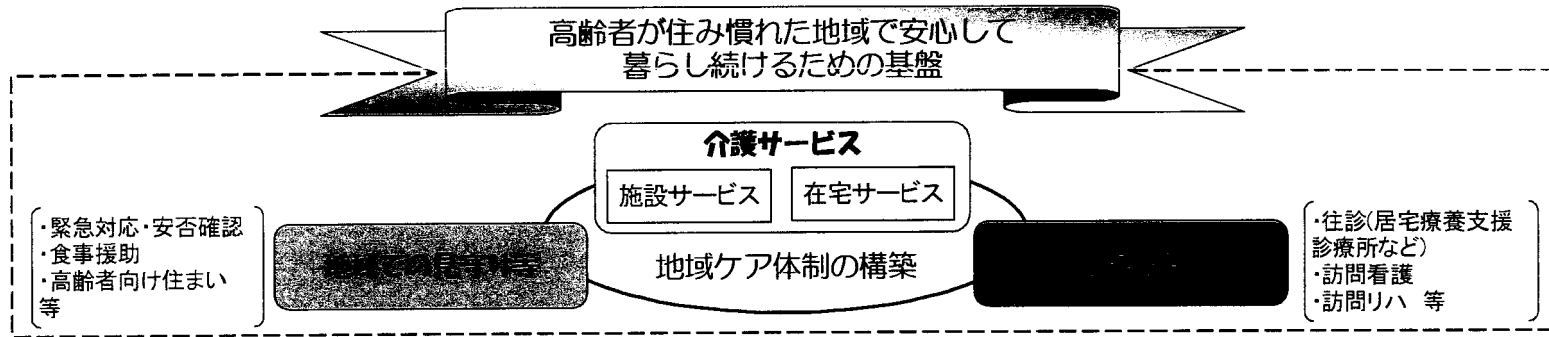 高齢者が住み慣れた地域で安心して
暮らし続けるための基盤
介護サービス
施設サービス
在宅サービス
・緊急対応・安否確認
・食事援助
・高齢者向け住まい
等
地域での見守り等
地域ケア体制の構築
・往診(居宅療養支援
診療所など)
・訪問看護
・訪問リハ 等